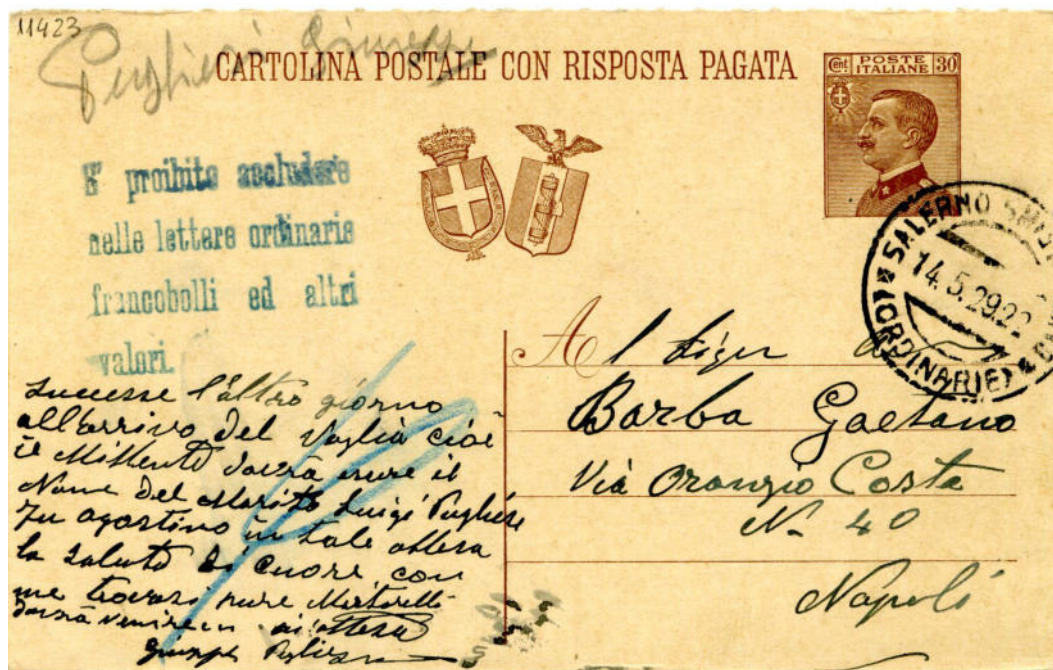 11423
Pugliese Giuseppe
CARTOLINA POSTALE CON RISPOSTA PAGATA
Cent POSTE ITALIANE 30
E' proibito accludere
nelle lettere ordinarie
francobolli ed altri
valori.
SALERNO
14.5.29.22
(ORDINARIE)
Al Sigr
Barba Gaetano
Via Oranzio Costa
N. 40
Napoli
successe l'altro giorno
all'arrivo del Vaglia cioè
il Mittente dovrà
Nome del Marito Luigi Pugliese
fu agostino in tale attesa
la saluto di cuore con
me trovasi pure
dovrà venire attesa
Giuseppe Pugliese